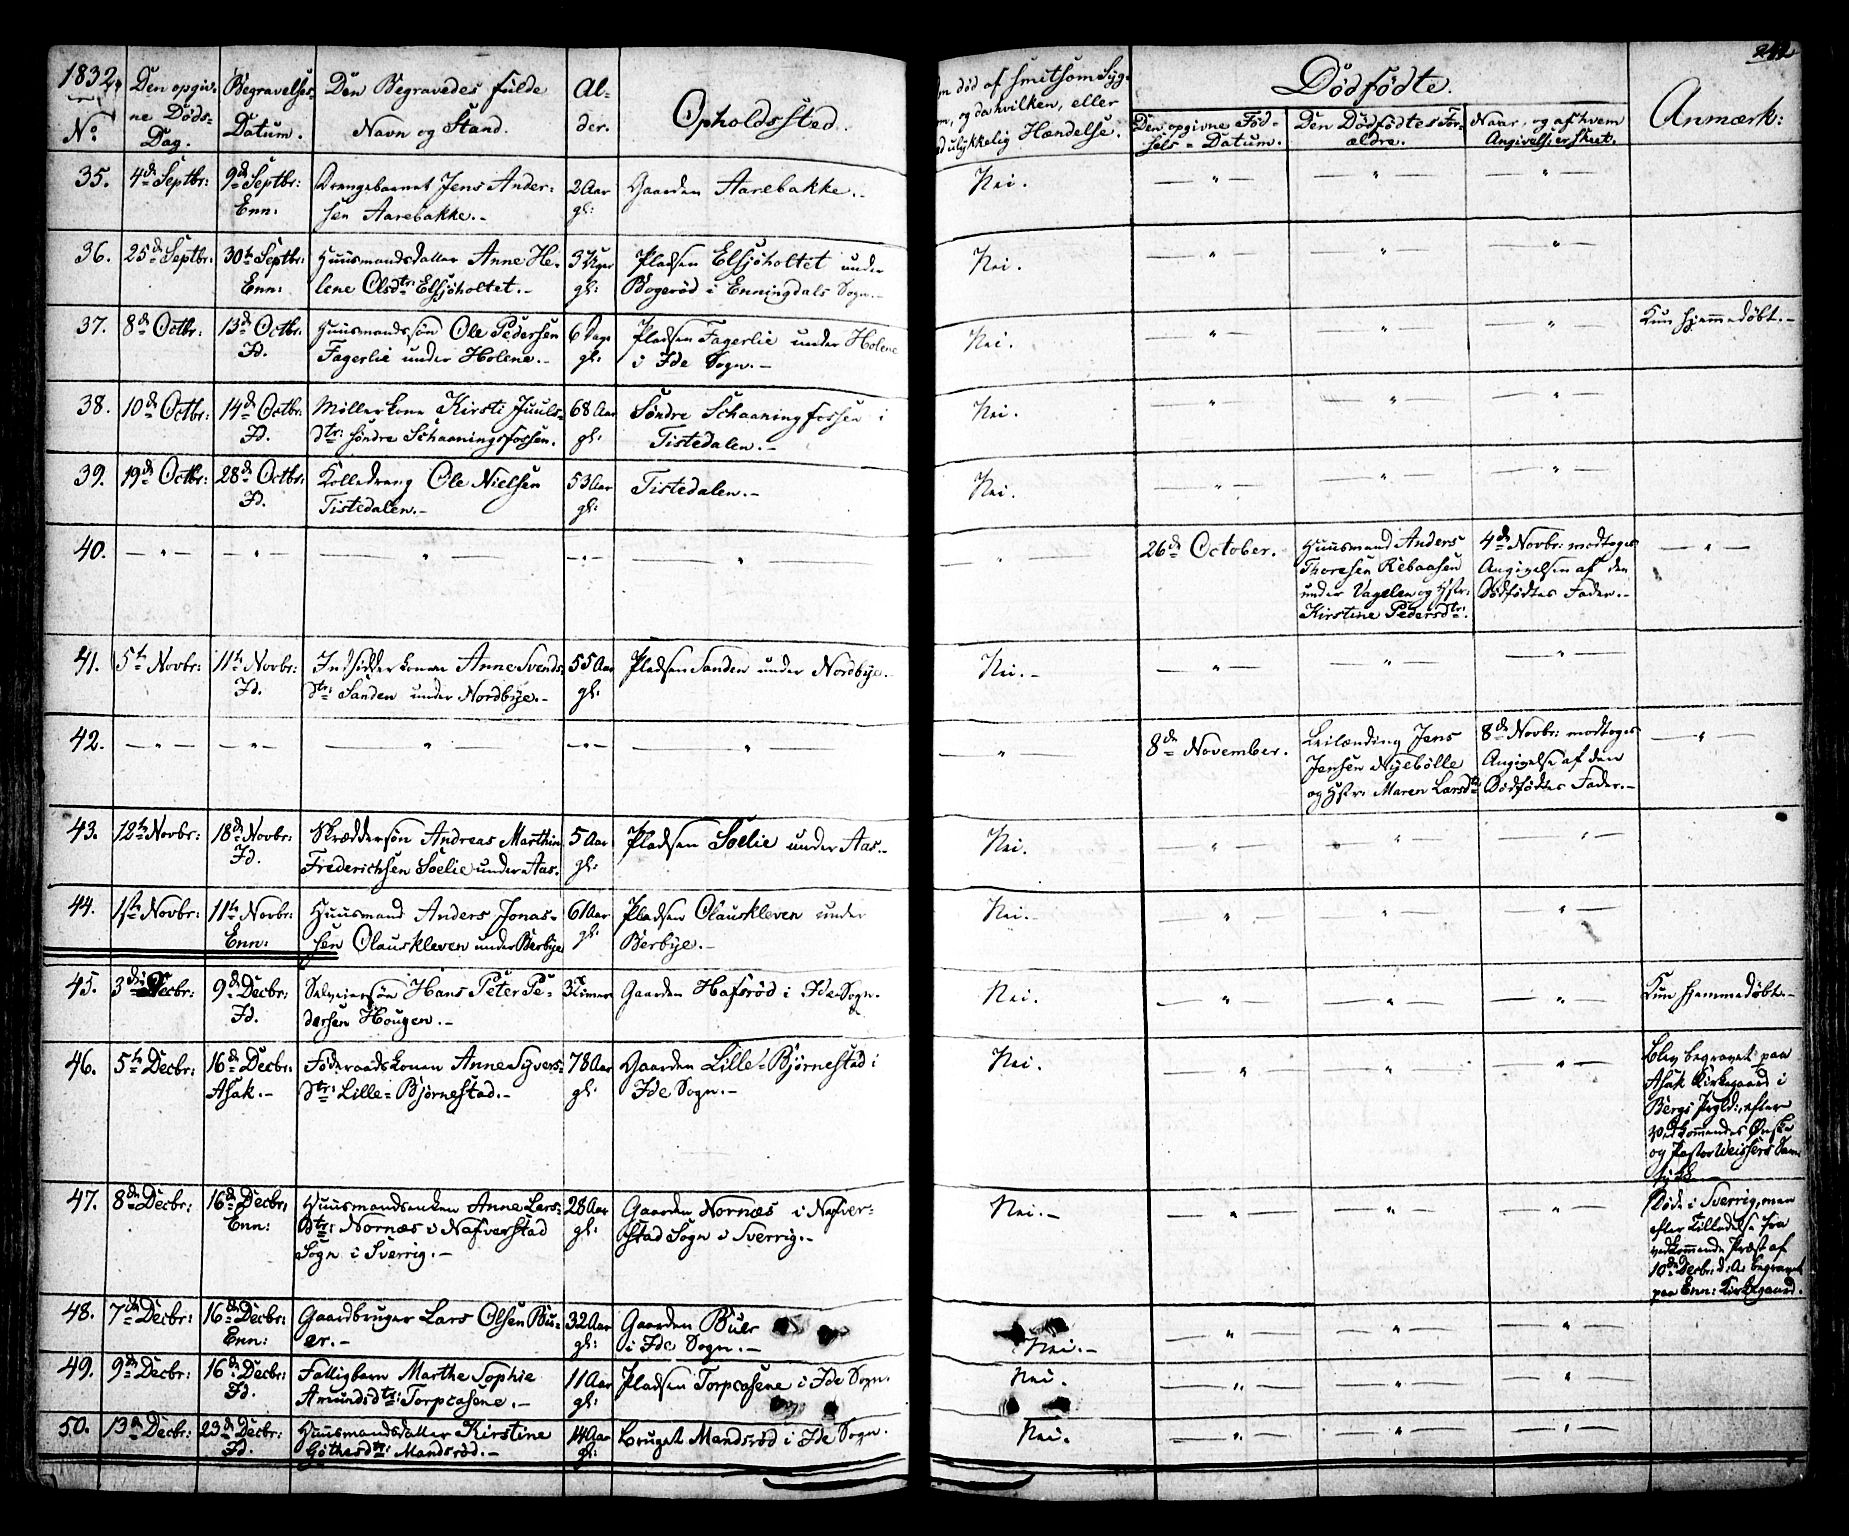 1832.
No
Den opgiv-
ne Døds-
Dag.
Begravelses-
Datum.
Den Begravedes fulde
Navn og Stand.
Al-
der.
Opholdssted.
død af smitsom Syg-
og da hvilken, eller
ulykkelig Hændelse.
Dødfødte.
Den opgivne Fød-
sels-Datum.
Den Dødfødtes For-
ældre.
Naar, og af hvem
Angivelse er skeet.
Anmærk:
242
35. 4de Septbr: 9de Septbr: Drengebarnet Jens Ander- 2 Aar Gaarden Aarebakke.- Nei.
Enn: sen Aarebakke.- gl:
36. 25de Septbr: 30te Septbr: Huusmandsdatter Anne He- 3 Uger Pladsen Elsjøholtet under Nei.
Enn: lene Olsdtr: Elsjøholtet.- gl: Bogerød i Enningdals Sogn.-
37. 8de Octbr: 13de Octbr: Huusmandssøn Ole Pedersen 6 Dage Pladsen Fagerlie under Holene Nei. Kun hjemmedøbt.-
Id. Fagerlie under Holene.- gl: i Ide Sogn.-
38. 10de Octbr: 14de Octbr: Møllerkone Kirsti Juuls- 68 Aar Søndre Schaaningfossen i Nei.
Id. dtr: søndre Schaaningsfossen. gl: Tistedalen.-
39. 19de Octbr: 28de Octbr: Ole Nielsen 53 Aar Tistedalen.- Nei.
Id. Tistedalen.- gl:
40. 26de October. Huusmand Anders 4de Novbr: modtoges
Thoresen Rebaasen Angivelsen af den
under Vagelen og Hstr: Dødfødtes Fader.-
Kirstine Pedersdtr:
41. 5te Novbr: 11te Novbr: Indsidderkonen Anne Svends- 55 Aar Pladsen Sanden under Nordbye.- Nei.-
Id. dtr: Sanden under Nordbye.- gl:
42. 8de November. Leilænding Jens 8de Novbr: modtoges
Jensen Nyebølle Angivelse af den
og Hstr: Maren Larsdtr Dødfødtes Fader.-
43. 12te Novbr: 18de Novbr: Skræddersøn Andreas Marthin 5 Aar Pladsen Soelie under Aas.- Nei.
Id. Frederichsen Soelie under Aas. gl:
44. 1ste Novbr: 11te Novbr: Huusmand Anders Jonas- 61 Aar Pladsen Clauskleven under Nei.-
Enn: sen Clauskleven under Berbye gl: Berbye.-
45. 3die Decbr: 9de Decbr: Selveiersøn Hans Peter Pe- 3 Timer Gaarden Hafsrød i Ide Sogn. Nei. Kun hjemmedøbt.-
Id. dersen Hougen.-
46. 5te Decbr: 16de Decbr: Føderaadskonen Anne Syvers- 78 Aar Gaarden Lille-Bjørnestad i Nei. Blev begravet paa
Asak.- dtr: Lille-Bjørnestad.- gl: Ide Sogn.- Asak Kirkegaard i
Bergs Prgld:, efter
Vedkommendes Ønske
og Pastor Weissers Sam-
tykke
47. 8de Decbr: 16de Decbr: Huusmandsenken Anne Lars- 28 Aar Gaarden Nornæs i Nafver- Nei.- Døde i Sverrig, men
Enn: dtr: Nornæs i Nafverstad gl: stad Sogn i Sverrig.- efter Tilladelse fra
Sogn i Sverrig.- vedkommende Præst af
10de Decbr: d: A: begravet
paa Enn: Kirkegaard.
48. 7de Decbr: 16de Decbr: Gaardbruger Lars Olsen Bu- 32 Aar Gaarden Buer Nei.-
Enn: er.- gl: i Ide Sogn.-
49. 9de Decbr: 16de Decbr: Fattigbarn Marthe Sophie 11 Aar Pladsen Torpcasene i Ide Sogn. Nei.
Id. Amundsdtr: Torpcasene.- gl:
50. 13de Decbr: 23de Decbr: Huusmandsdatter Kirstine 14 Aar Bruget Mandsrød i Ide Sogn. Nei.
Id. Mandsrød.- gl: